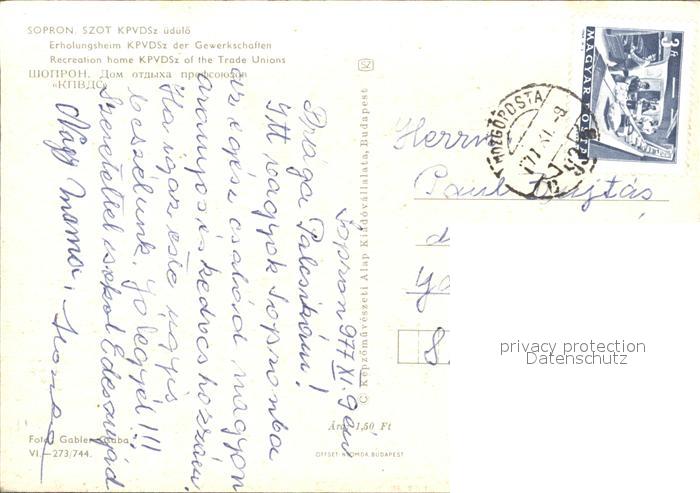 SOPRON. SZOT KPVDSz üdülő
Erholungsheim KPVDSz der Gewerkschaften
Recreation home KPVDSz of the Trade Unions
ШОПРОН. Дом отдыха профсоюзов
«КПВДС»
Sopron 977 XI. 9 én
Drága Palcsikám!
Itt vagyok Sopronba
az egész család nagyon
aranyos és kedves hozzám.
Ha igaz este mégis
beszélünk. Jó legyél!!!
Szeretettel csókol Édesanyád
Nagymama,
Fotó: Gabler Csaba
VI.—273/744.
© Képzőművészeti Alap Kiadóvállalata, Budapest
SZ
Ára: 1,50 Ft
OFFSET-NYOMDA, BUDAPEST
MAGYAR POSTA
3 Ft
MOZGÓPOSTA
'77 XI. -9
Herrn
Paul Lujtás
privacy protection
Datenschutz